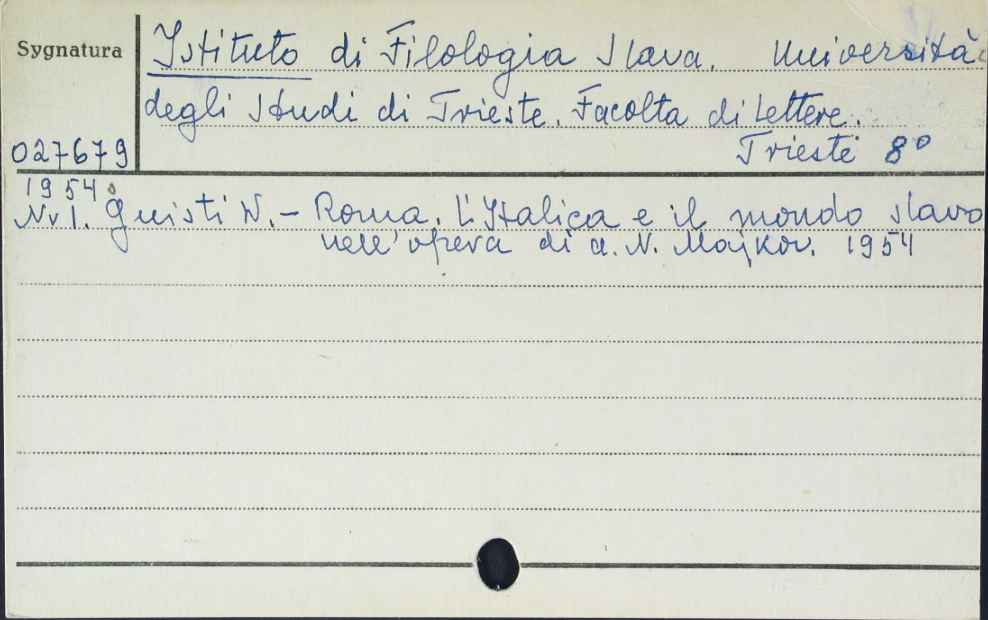 Sygnatura
Istituto di Filologia Slava. Università
degli Studi di Trieste. Facolta di Lettere.
027679
Trieste 8°
1954
Nr 1. Guisti W. – Roma. L'Italica e il mondo slavo
nell'opera di A. N. Majkov. 1954